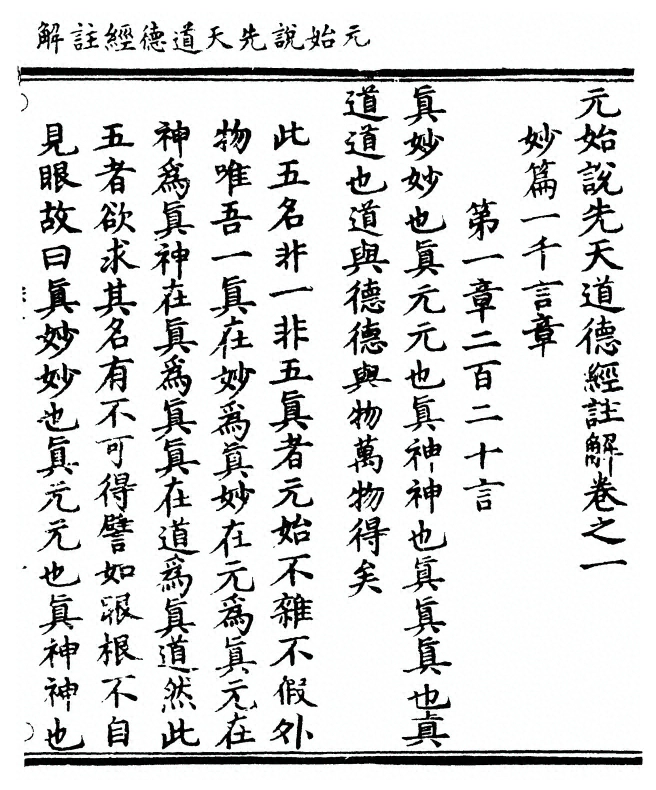 元始說先天道德經註解
元始說先天道德經註解卷之一
妙篇一千言章
第一章二百二十言
眞妙妙也眞元元也眞神神也眞眞眞也眞
道道也道與德德與物萬物得矣
此五名非一非五眞者元始不雜不假外
物唯吾一眞在妙爲眞妙在元爲眞元在
神爲眞神在眞爲眞眞在道爲眞道然此
五者欲求其名有不可得譬如眼根不自
見眼故曰眞妙妙也眞元元也眞神神也